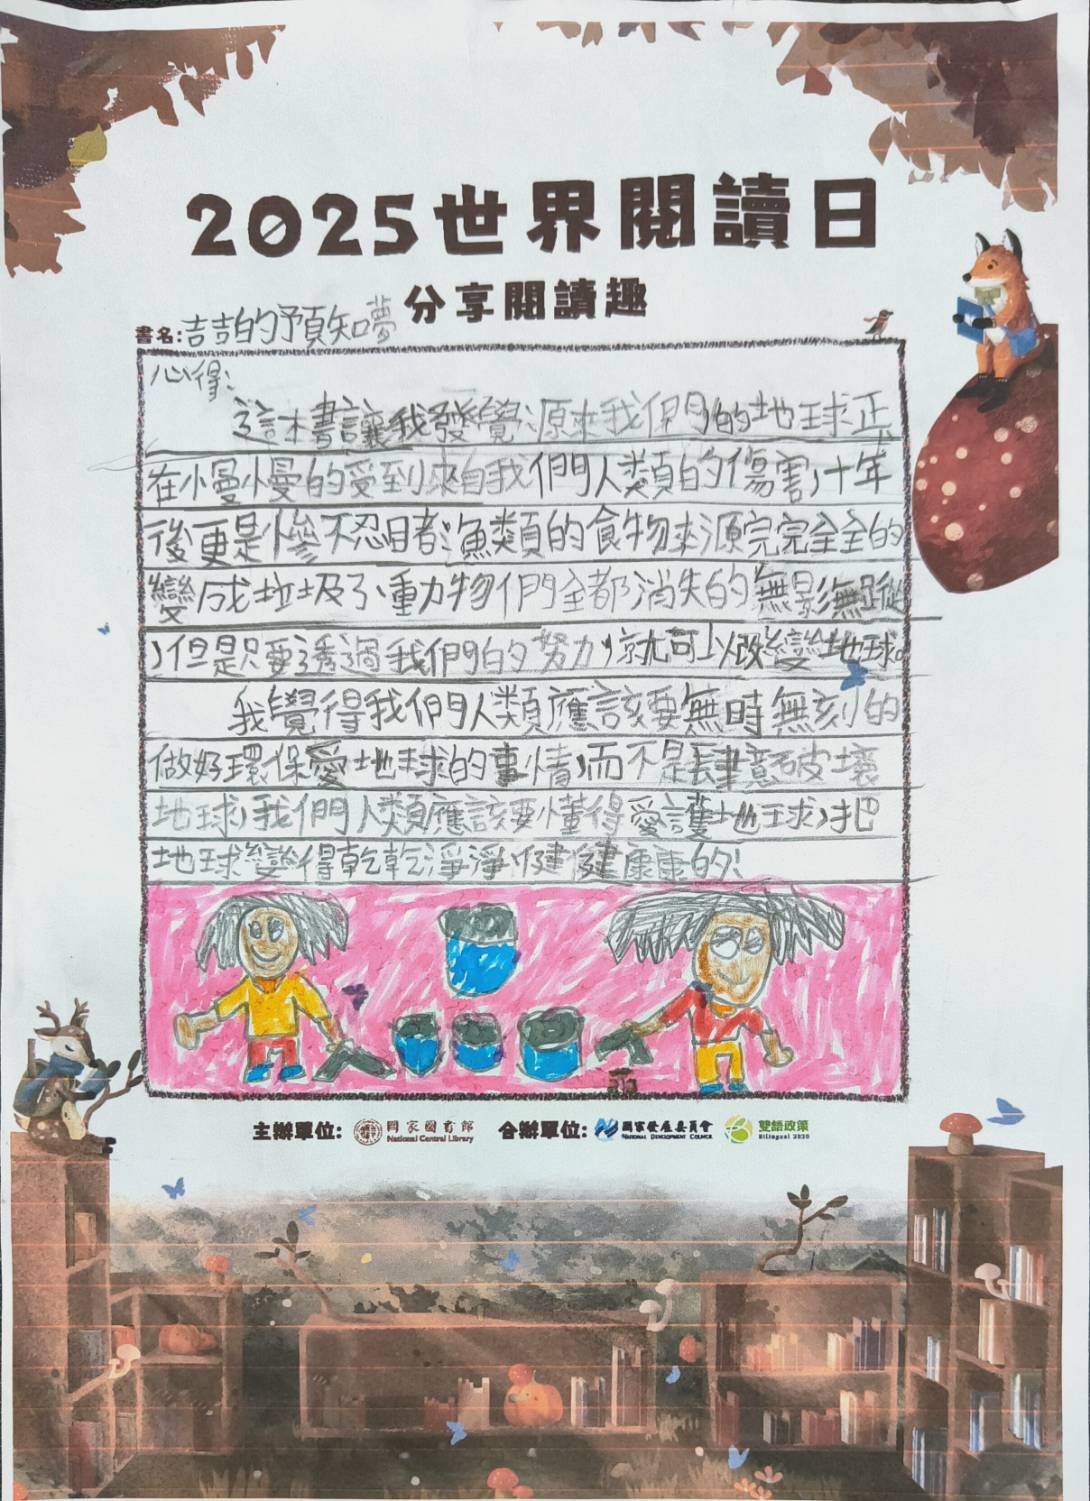 2025世界閱讀日
分享閱讀趣
書名:吉吉的預知夢
心得:
這本書讓我發覺原來我們的地球正
在慢慢的受到來自我們人類的傷害,十年
後更是慘不忍睹:魚類的食物來源完完全全的
變成垃圾了、動物們全都消失的無影無蹤
,但是只要透過我們的努力,就可以改變地球。
我覺得我們人類應該要無時無刻的
做好環保愛地球的事情,而不是肆意破壞
地球,我們人類應該要懂得愛護地球,把
地球變得乾乾淨淨、健健康康的!
主辦單位: 國家圖書館 National Central Library 合辦單位: 國家發展委員會 NATIONAL DEVELOPMENT COUNCIL 雙語政策 Bilingual 2030